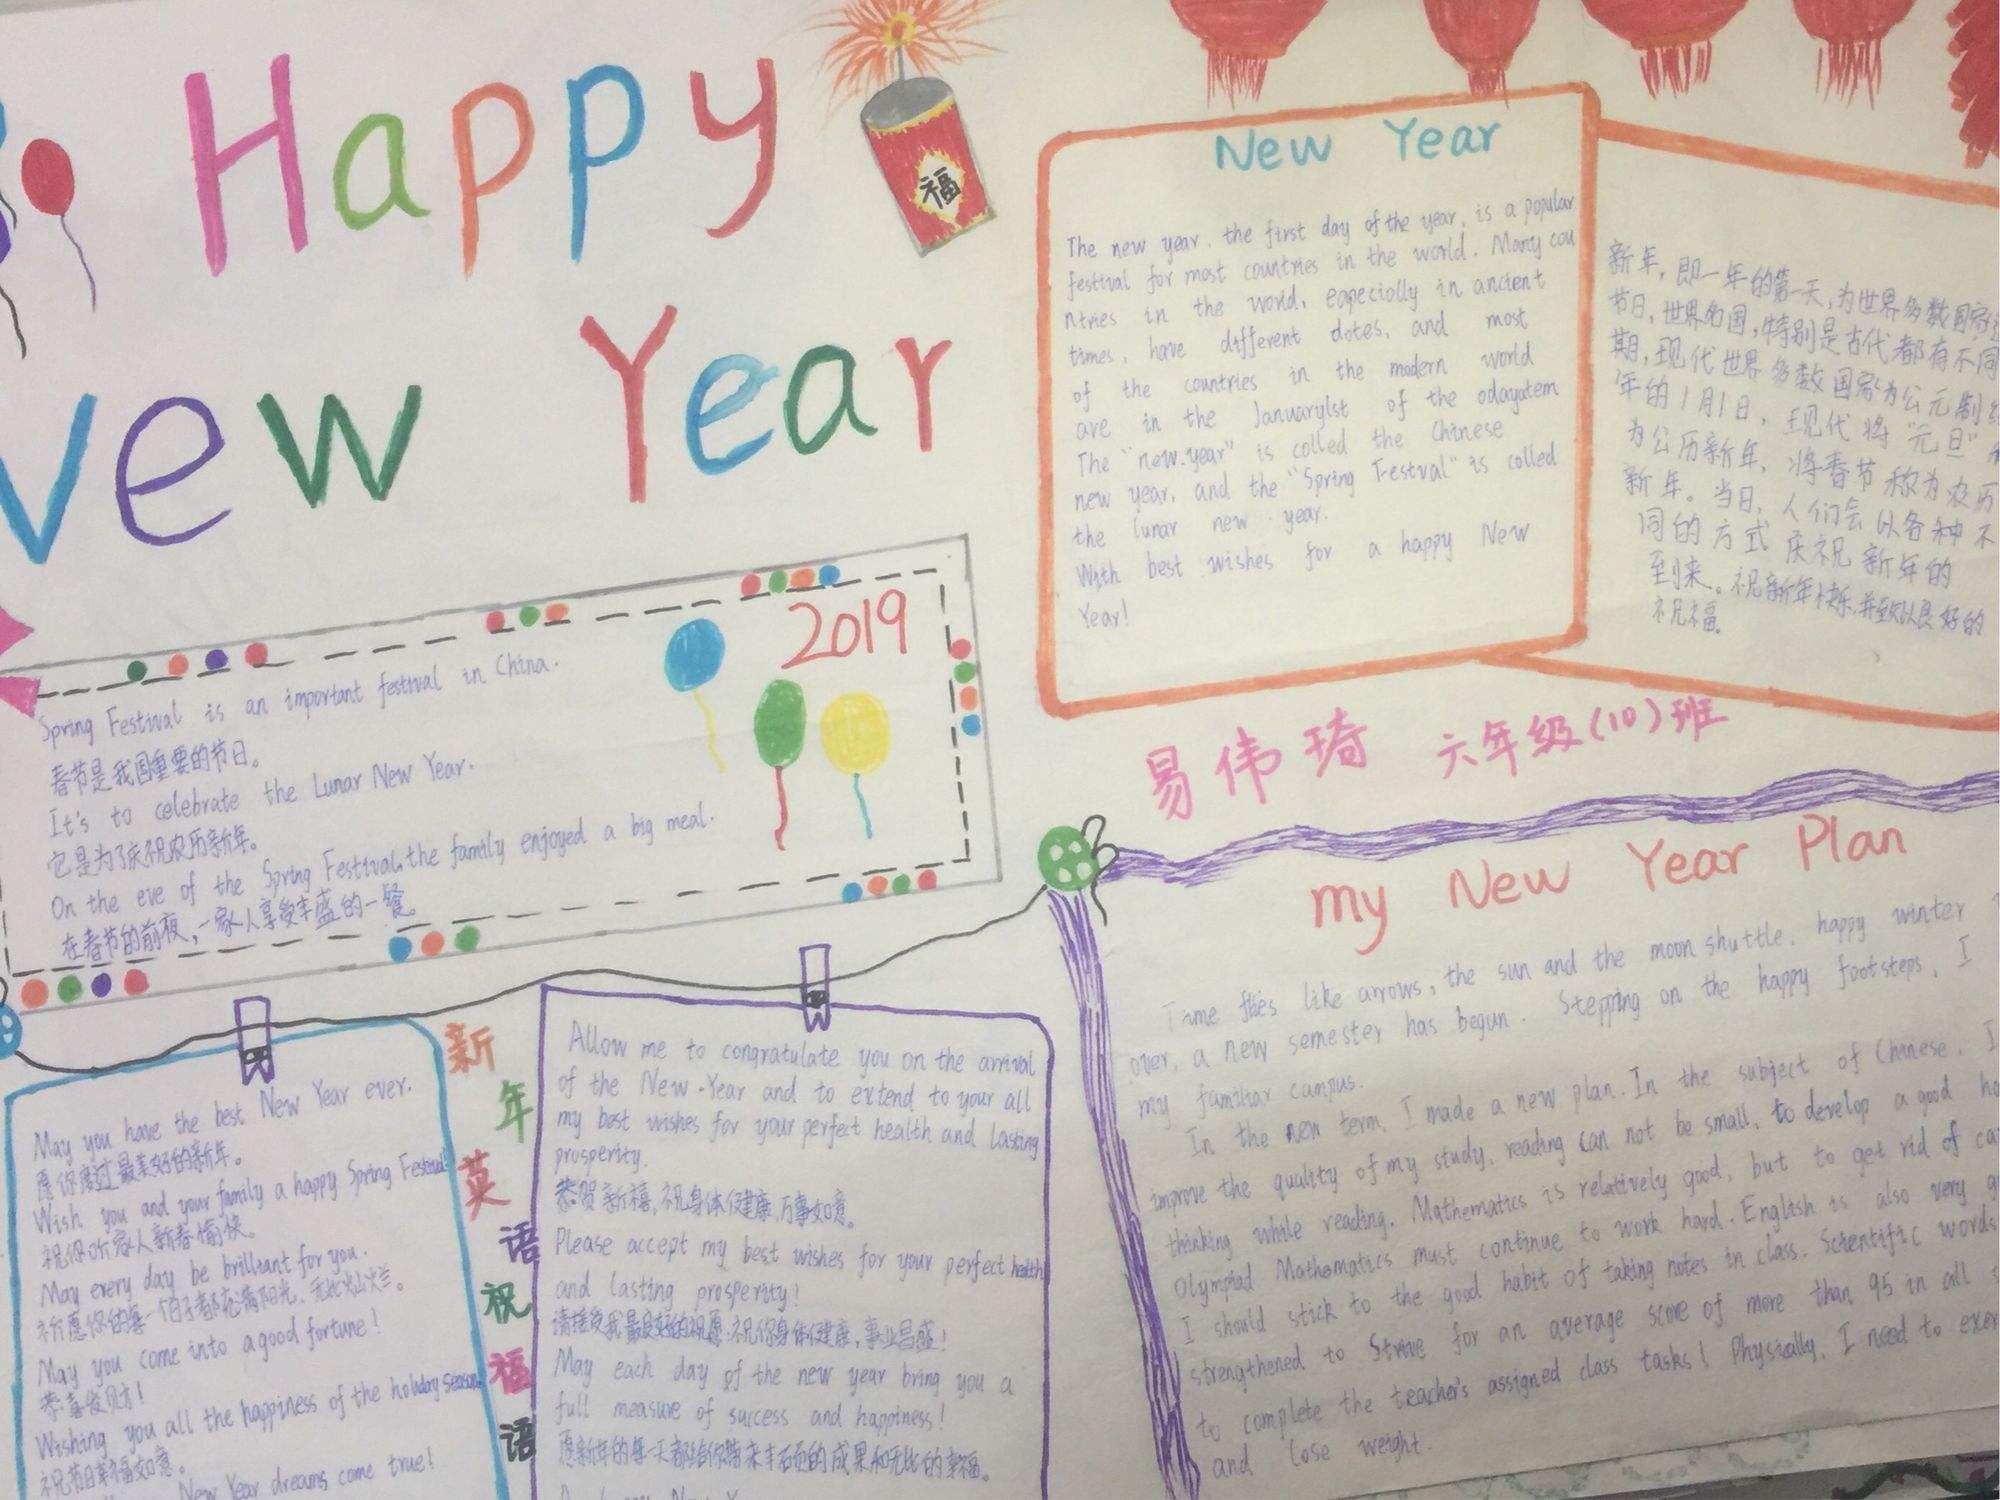 Happy
New Year
福
New Year
The new year, the first day of the year, is a popular
festival for most countries in the world. Many cou
ntries in the world, eapeciolly in ancient
times, have different dotes, and most
of the countries in the modern world
are in the January1st of the odayatem
The "new.year" is colled the Chinese
new year, and the "Spring Festval" is colled
the lunar new year.
With best wishes for a happy New
Year!
新年,即一年的第一天,为世界多数国家
节日,世界各国,特别是古代都有不同
期,现代世界多数国家为公元制
年的1月1日,现代将"元旦"
为公历新年,将春节称为农历
新年。当日,人们会以各种不
同的方式庆祝新年的
到来。祝新年快乐,并致以良好的
祝福。
2019
Spring Festival is an important festival in China.
春节是我国重要的节日。
It's to celebrate the Lunar New Year.
它是为了庆祝农历新年。
On the eve of the Spring Festival, the family enjoyed a big meal.
在春节的前夜,一家人享受丰盛的一餐。
易伟琦 六年级(10)班
my New Year Plan
Time flies like arrows, the sun and the moon shuttle, happy winter
over, a new semester has begun. Stepping on the happy footsteps, I
my familiar campus.
In the new term, I made a new plan. In the subject of Chinese, I
improve the quality of my study, reading can not be small, to develop a good
thinking while reading. Mathematics is relatively good, but to get rid of
Olympiad Mathematics must continue to work hard. English is also very
I should stick to the good habit of taking notes in class. Scientific words
strengthened to Strive for an average score of more than 95 in all
to complete the teacher's assigned class tasks! Physically, I need to
and lose weight.
新年英语祝福语
May you have the best New Year ever.
愿你度过最美好的新年。
Wish you and your family a happy Spring Festival
祝你听家人新春愉快。
May every day be brilliant for you.
祈愿你的每一个日子都充满阳光,无比灿烂。
May you come into a good fortune!
恭喜发财!
Wishing you all the happiness of the holiday season
祝节日幸福如意。
New Year dreams come true!
Allow me to congratulate you on the arrival
of the New Year and to extend to your all
my best wishes for your perfect health and lasting
prosperity.
恭贺新禧,祝身体健康,万事如意。
Please accept my best wishes for your perfect health
and lasting prosperity!
请接受我最良好的祝愿,祝你身体健康,事业昌盛!
May each day of the new year bring you a
full measure of success and happiness!
愿新年的每一天都给你带来丰硕的成果和无比的幸福。